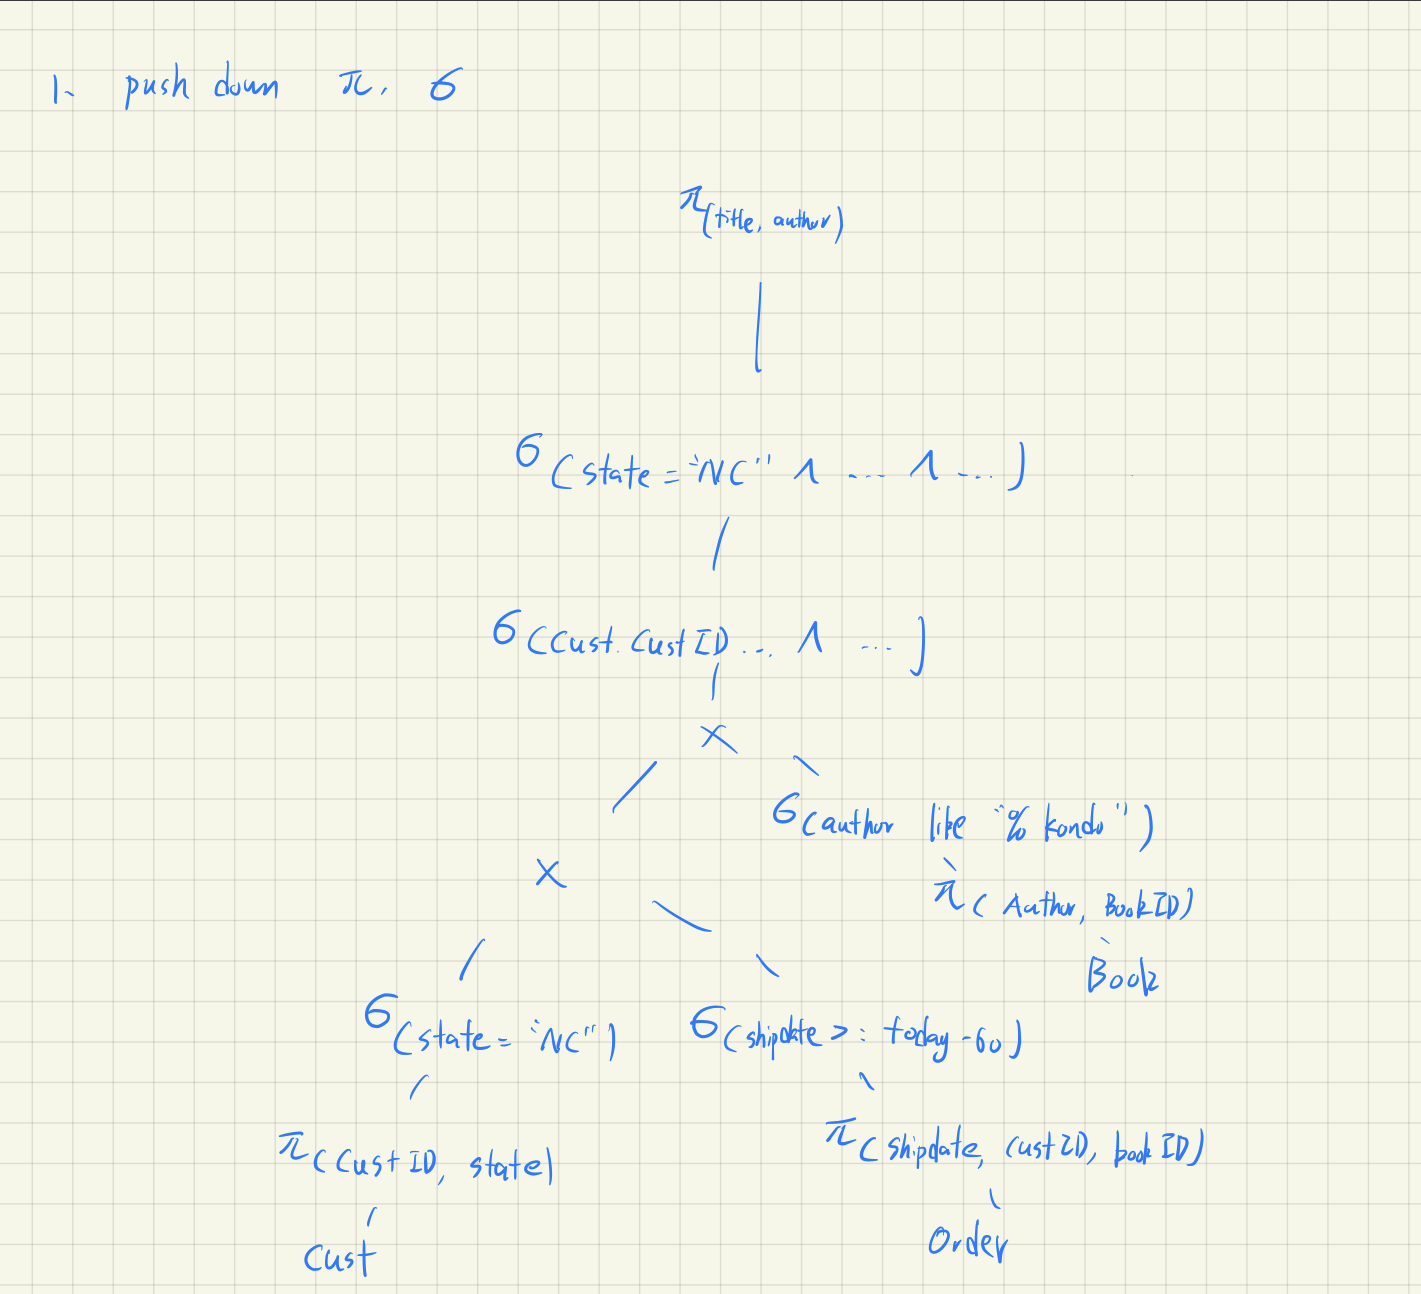 1. push down π, σ
π(title, author)
σ(state = "NC" ∧ ... ∧ ...)
σ(Cust.CustID ... ∧ ...)
×
σ(author like "% kondo")
×
π(Author, BookID)
Book
σ(state = "NC") σ(shipdate >: today - 60)
π(CustID, state) π(shipdate, custID, bookID)
Cust Order